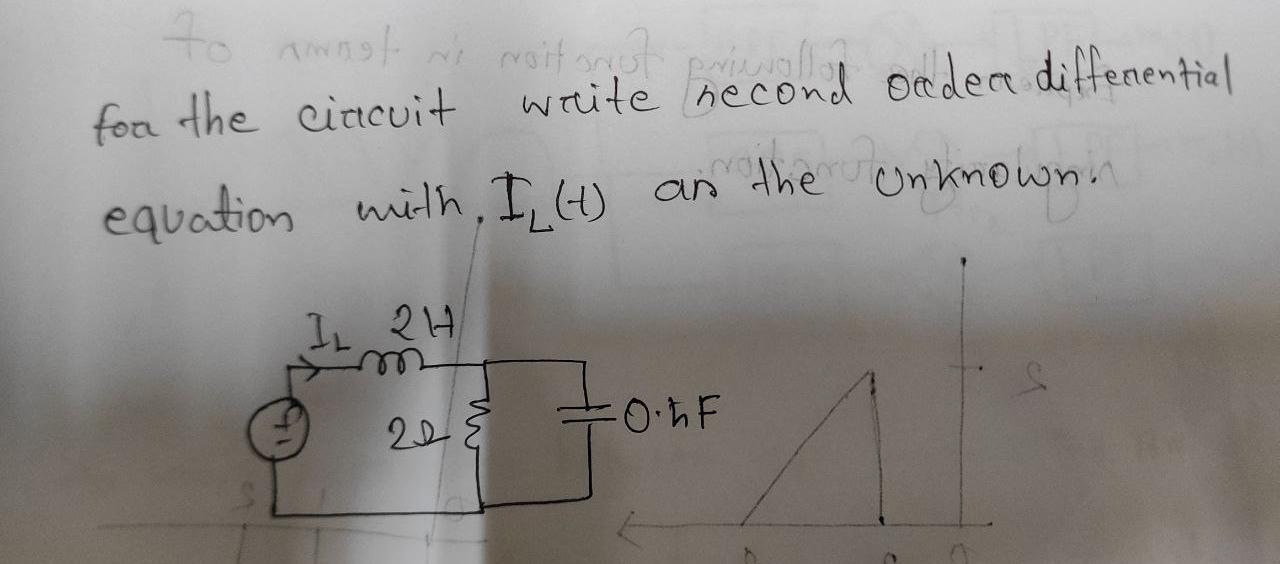 for the circuit write second order differential
equation with I_L(t) as the unknown.
I_L 2H
2Ω 0.5F